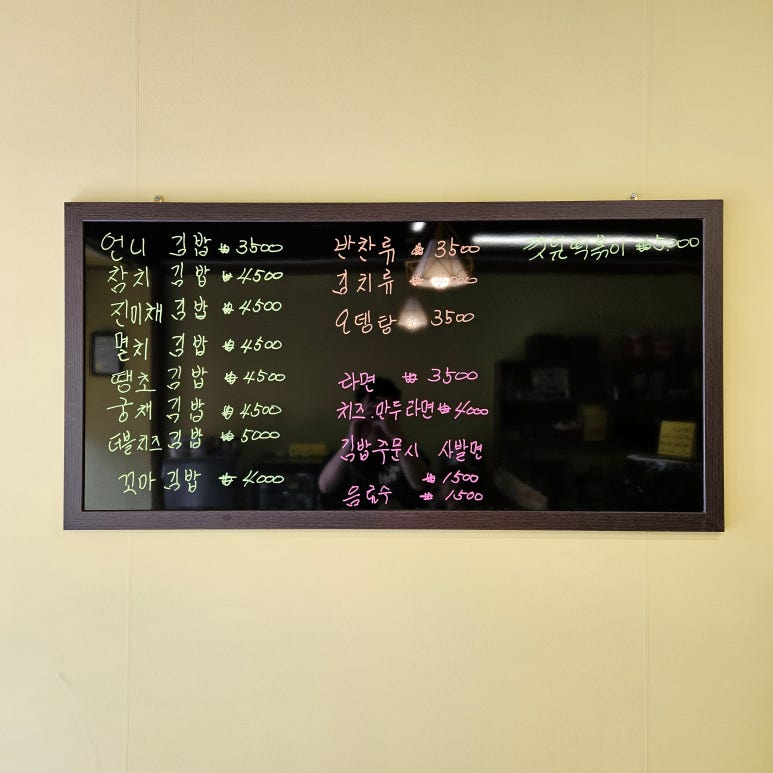 언니 김밥 ₩3500
참치 김밥 ₩4500
진미채 김밥 ₩4500
멸치 김밥 ₩4500
땡초 김밥 ₩4500
궁채 김밥 ₩4500
더블치즈 김밥 ₩5000
꼬마 김밥 ₩4000
반찬류 ₩3500
김치류
오뎅탕 ₩3500
라면 ₩3500
치즈.만두라면 ₩4000
김밥주문시 사발면
₩1500
음료수 ₩1500
떡볶이 ₩5.000